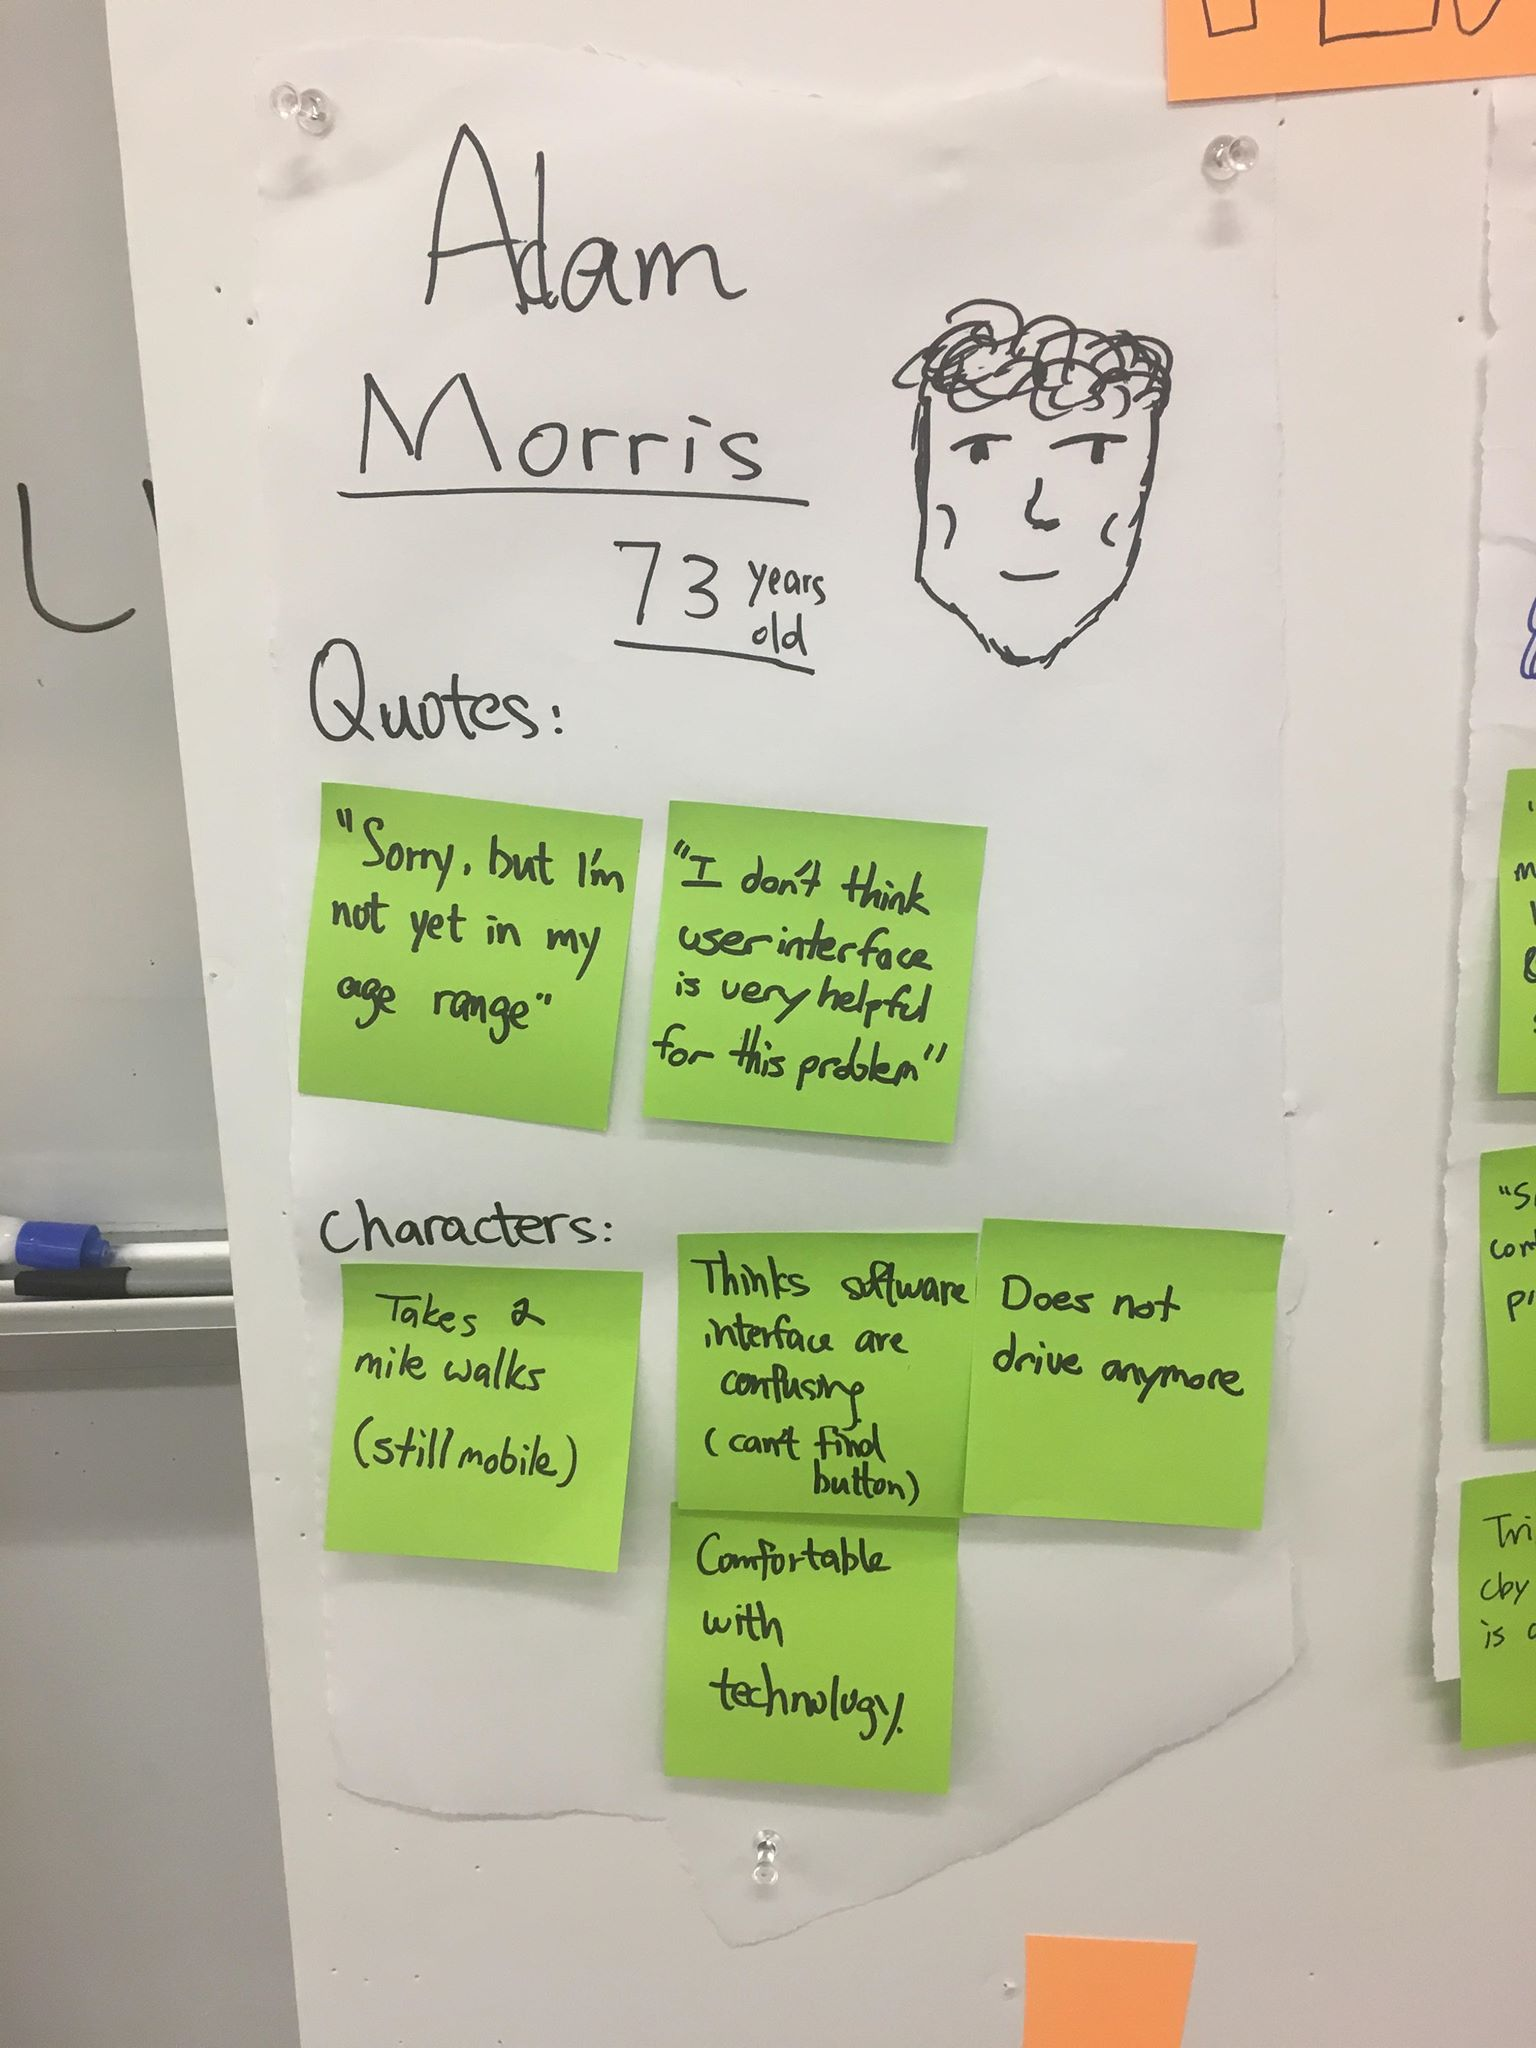 Adam
Morris
73 years
old
Quotes:
"Sorry, but I'm
not yet in my
age range"
"I don't think
user interface
is very helpful
for this problem"
Characters:
Takes 2
mile walks
(still mobile)
Thinks software
interface are
confusing
(can't find
button)
Does not
drive anymore
Comfortable
with
technology.
is